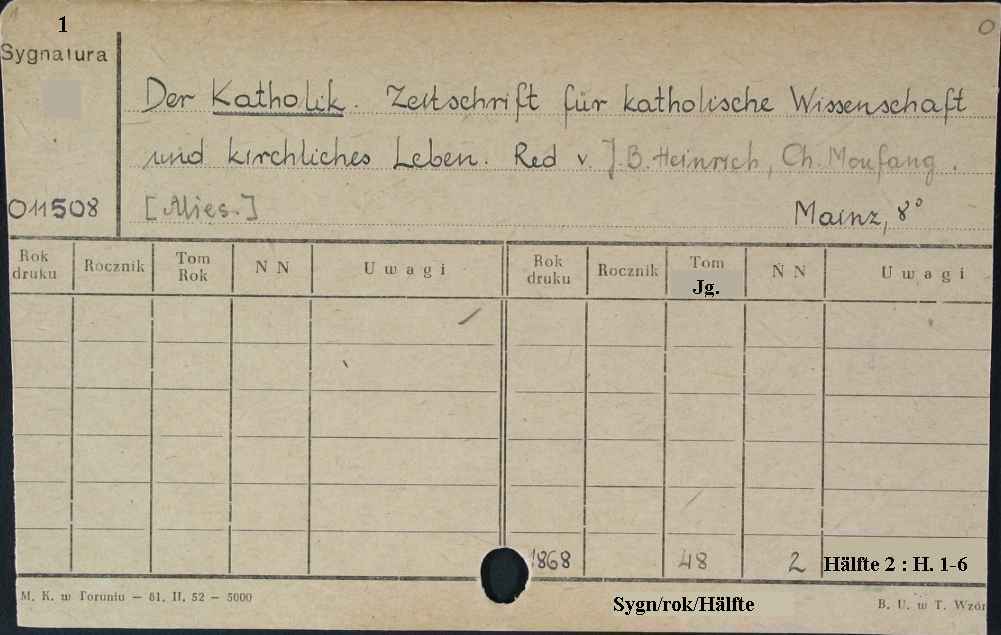 1
Sygnatura
0
Der Katholik. Zeitschrift für katholische Wissenschaft
und kirchliches Leben. Red v. J.B. Heinrich, Ch. Moufang.
011508 [Mies.] Mainz, 8°
Rok druku Rocznik Tom Rok N N Uwagi Rok druku Rocznik Tom Jg. N N Uwagi
1868 48 2 Hälfte 2 : H. 1-6
M. K. w Toruniu – 81, II, 52 – 5000 Sygn/rok/Hälfte B. U. w T. Wzór